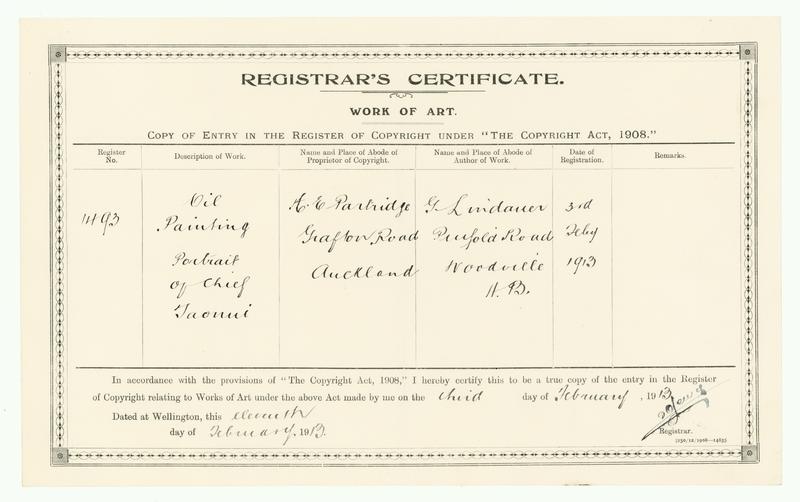 REGISTRAR'S CERTIFICATE.
WORK OF ART.
COPY OF ENTRY IN THE REGISTER OF COPYRIGHT UNDER "THE COPYRIGHT ACT, 1908."
Register No.
Description of Work.
Name and Place of Abode of Proprietor of Copyright.
Name and Place of Abode of Author of Work.
Date of Registration.
Remarks.
1493
Oil
Painting
Portrait
of Chief
Taonui
A. E Partridge
Grafton Road
Auckland
G. Lindauer
Penfold Road
Woodville
H. B.
3rd
Feby
1913
In accordance with the provisions of "The Copyright Act, 1908," I hereby certify this to be a true copy of the entry in the Register
of Copyright relating to Works of Art under the above Act made by me on the third day of February, 1913.
Dated at Wellington, this eleventh
day of February, 1913.
Registrar.
[250/12/1908—14683